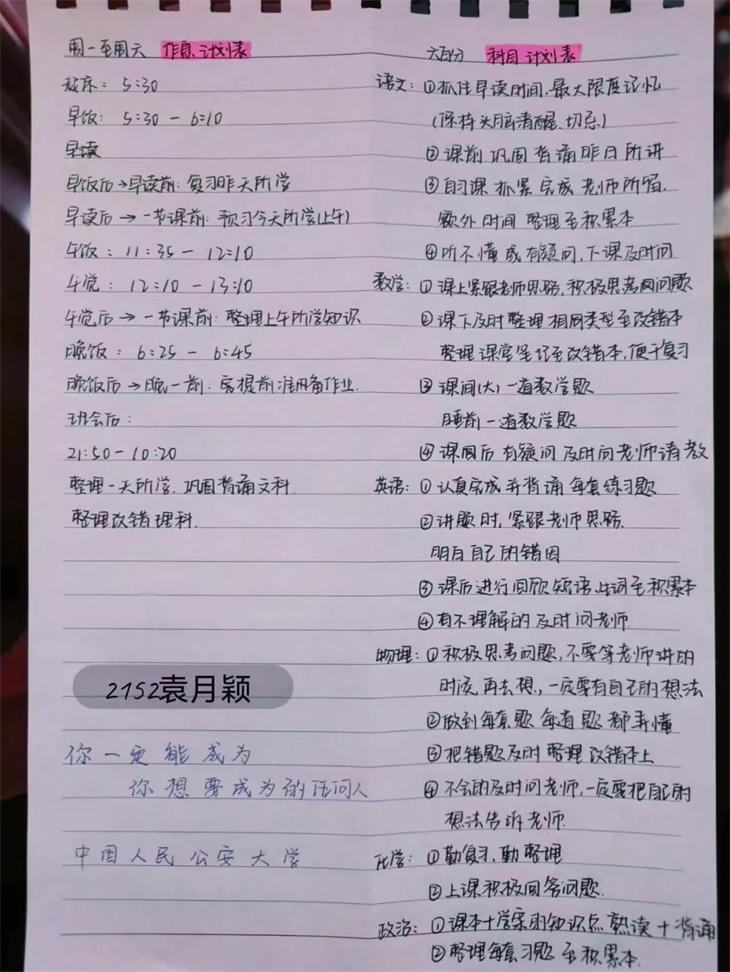 周一至周六 作息计划表
起床: 5:30
早饭: 5:30 - 6:10
早读
早饭后→早读前: 复习昨天所学
早读后 → 一节课前: 预习今天所学(上午)
午饭: 11:35 - 12:10
午觉: 12:10 - 13:10
午觉后 → 一节课前: 整理上午所学知识
晚饭: 6:25 - 6:45
晚饭后→晚一前: 完提前准备作业.
班会后:
21:50 - 10:20
整理一天所学. 巩固背诵文科.
整理改错理科.
2152袁月颖
你一定能成为
你想要成为的任何人
中国人民公安大学
六百分 科目计划表
语文: ①抓住早读时间, 最大限度记忆
(保持头脑清醒、切忌)
②课前巩固背诵昨日所讲
③自习课抓紧完成老师所留.
额外时间整理至积累本
④听不懂或有疑问, 下课及时问
数学: ①课上紧跟老师思路, 积极思考问题
②课下及时整理相同类型至改错本
整理课堂笔记至改错本, 便于复习
③课间(大)一道数学题
睡前一道数学题
④课间后有疑问及时问老师请教
英语: ①认真完成并背诵每套练习题
②讲题时, 紧跟老师思路.
明白自己的错因
③课后进行回顾短语、生词至积累本
④有不理解的及时问老师.
物理: ①积极思考问题, 不要等老师讲的
时候再去想, 一定要有自己的想法
②做到每套题每道题都弄懂
③把错题及时整理改错本上
④不会的及时问老师, 一定要把自己的
想法告诉老师.
化学: ①勤复习, 勤整理
②上课积极回答问题.
政治: ①课本+学案的知识点熟读+背诵
②整理每套习题至积累本.